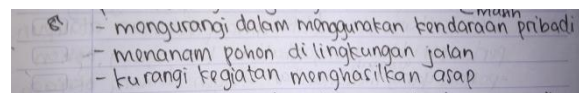 8. - mengurangi dalam menggunakan kendaraan pribadi
- menanam pohon di lingkungan jalan
- kurangi kegiatan menghasilkan asap